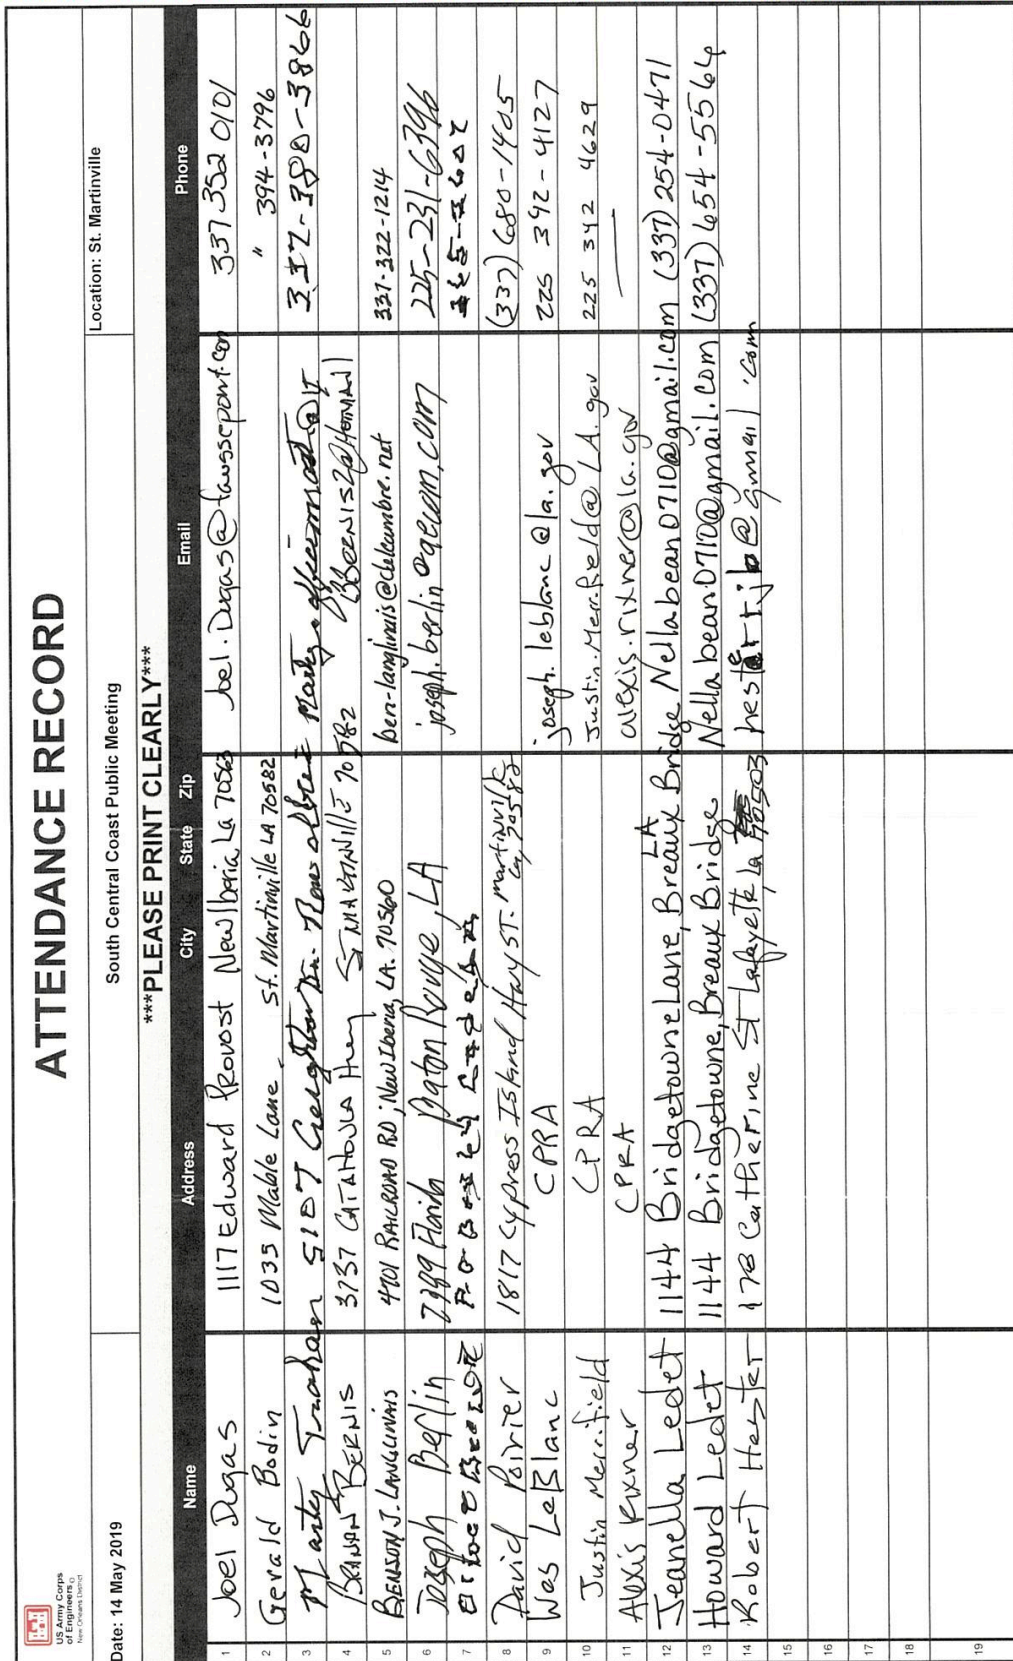 US Army Corps
of Engineers
New Orleans District
ATTENDANCE RECORD
Date: 14 May 2019 South Central Coast Public Meeting Location: St. Martinville
***PLEASE PRINT CLEARLY***
Name Address City State Zip Email Phone
1 Joel Dugas 1117 Edward Provost New Iberia La 70563 joel.Dugas@ 337 352 0101
2 Gerald Bodin 1035 Mable Lane St. Martinville LA 70582 " 394-3796
3 Marty Trahan 5107 337-380-3866
4 BERNIS 3737 CATAHOULA Hwy ST MARTINVILLE 70582
5 BENSON J. LANGLINAIS 4701 RAILROAD RD; New Iberia, LA. 70560 ben-langlinais@delcambre.net 337-322-1214
6 Joseph Berlin 7389 Florida Baton Rouge, LA joseph.berlin@aecom.com 225-231-6396
7
8 David Poirier 1817 Cypress Island Hwy ST. Martinville La, 70582 (337) 680-1405
9 Wes LeBlanc CPRA joseph.leblanc@la.gov 225 342-4127
10 Justin Merrifield CPRA Justin.Merrifield@LA.gov 225 342 4629
11 Alexis Rixner CPRA alexis.rixner@la.gov —
12 Jeanella Ledet 1144 Bridgetowne Lane, Breaux Bridge LA Nellabean0710@gmail.com (337) 254-0471
13 Howard Ledet 1144 Bridgetowne, Breaux Bridge Nellabean0710@gmail.com (337) 654-5564
14 Robert Hester 178 Catherine St Lafayette La 70503 @gmail.com
15
16
17
18
19